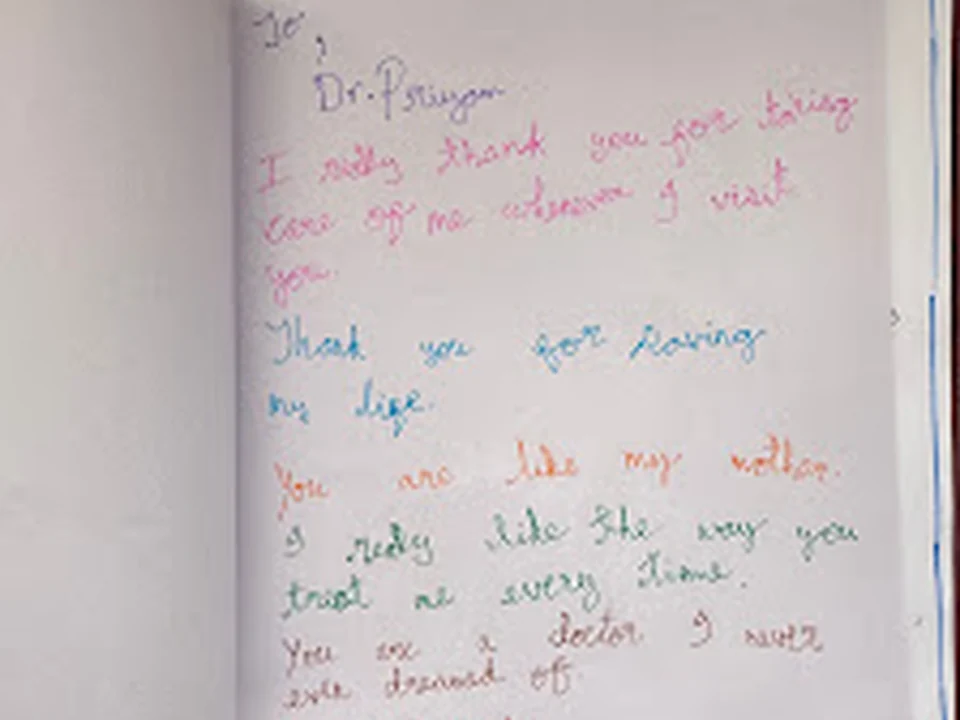 To,
Dr. Priyam
I really thank you for taking
care of me whenever I visit
you.
Thank you for saving
my life.
You are like my mother.
I really like the way you
treat me every time.
You are a doctor I never
ever dreamed of.